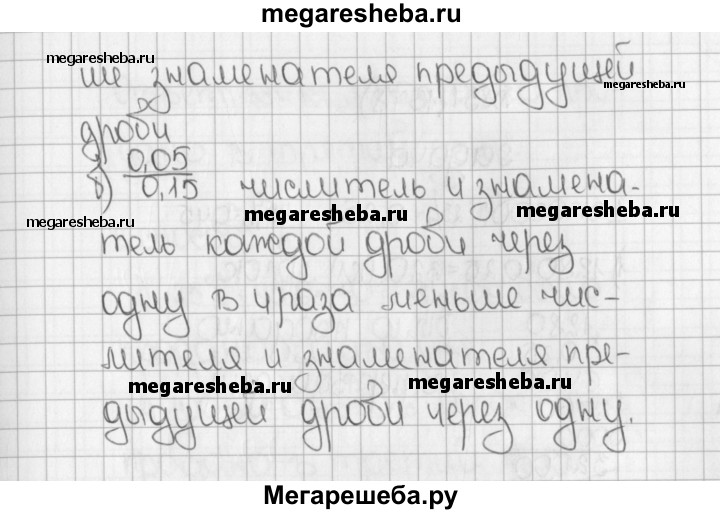 megaresheba.ru
ше знаменателя предыдущей
megaresheba.ru
megaresheba.ru
дроби
б) 0,05/0,15 числитель и знамена-
megaresheba.ru
megaresheba.ru
megaresheba.ru
тель каждой дроби через
одну в 4 раза меньше чис-
лителя и знаменателя пре-
megaresheba.ru
megaresheba.ru
дыдущей дроби через одну.
Мегарешеба.ру